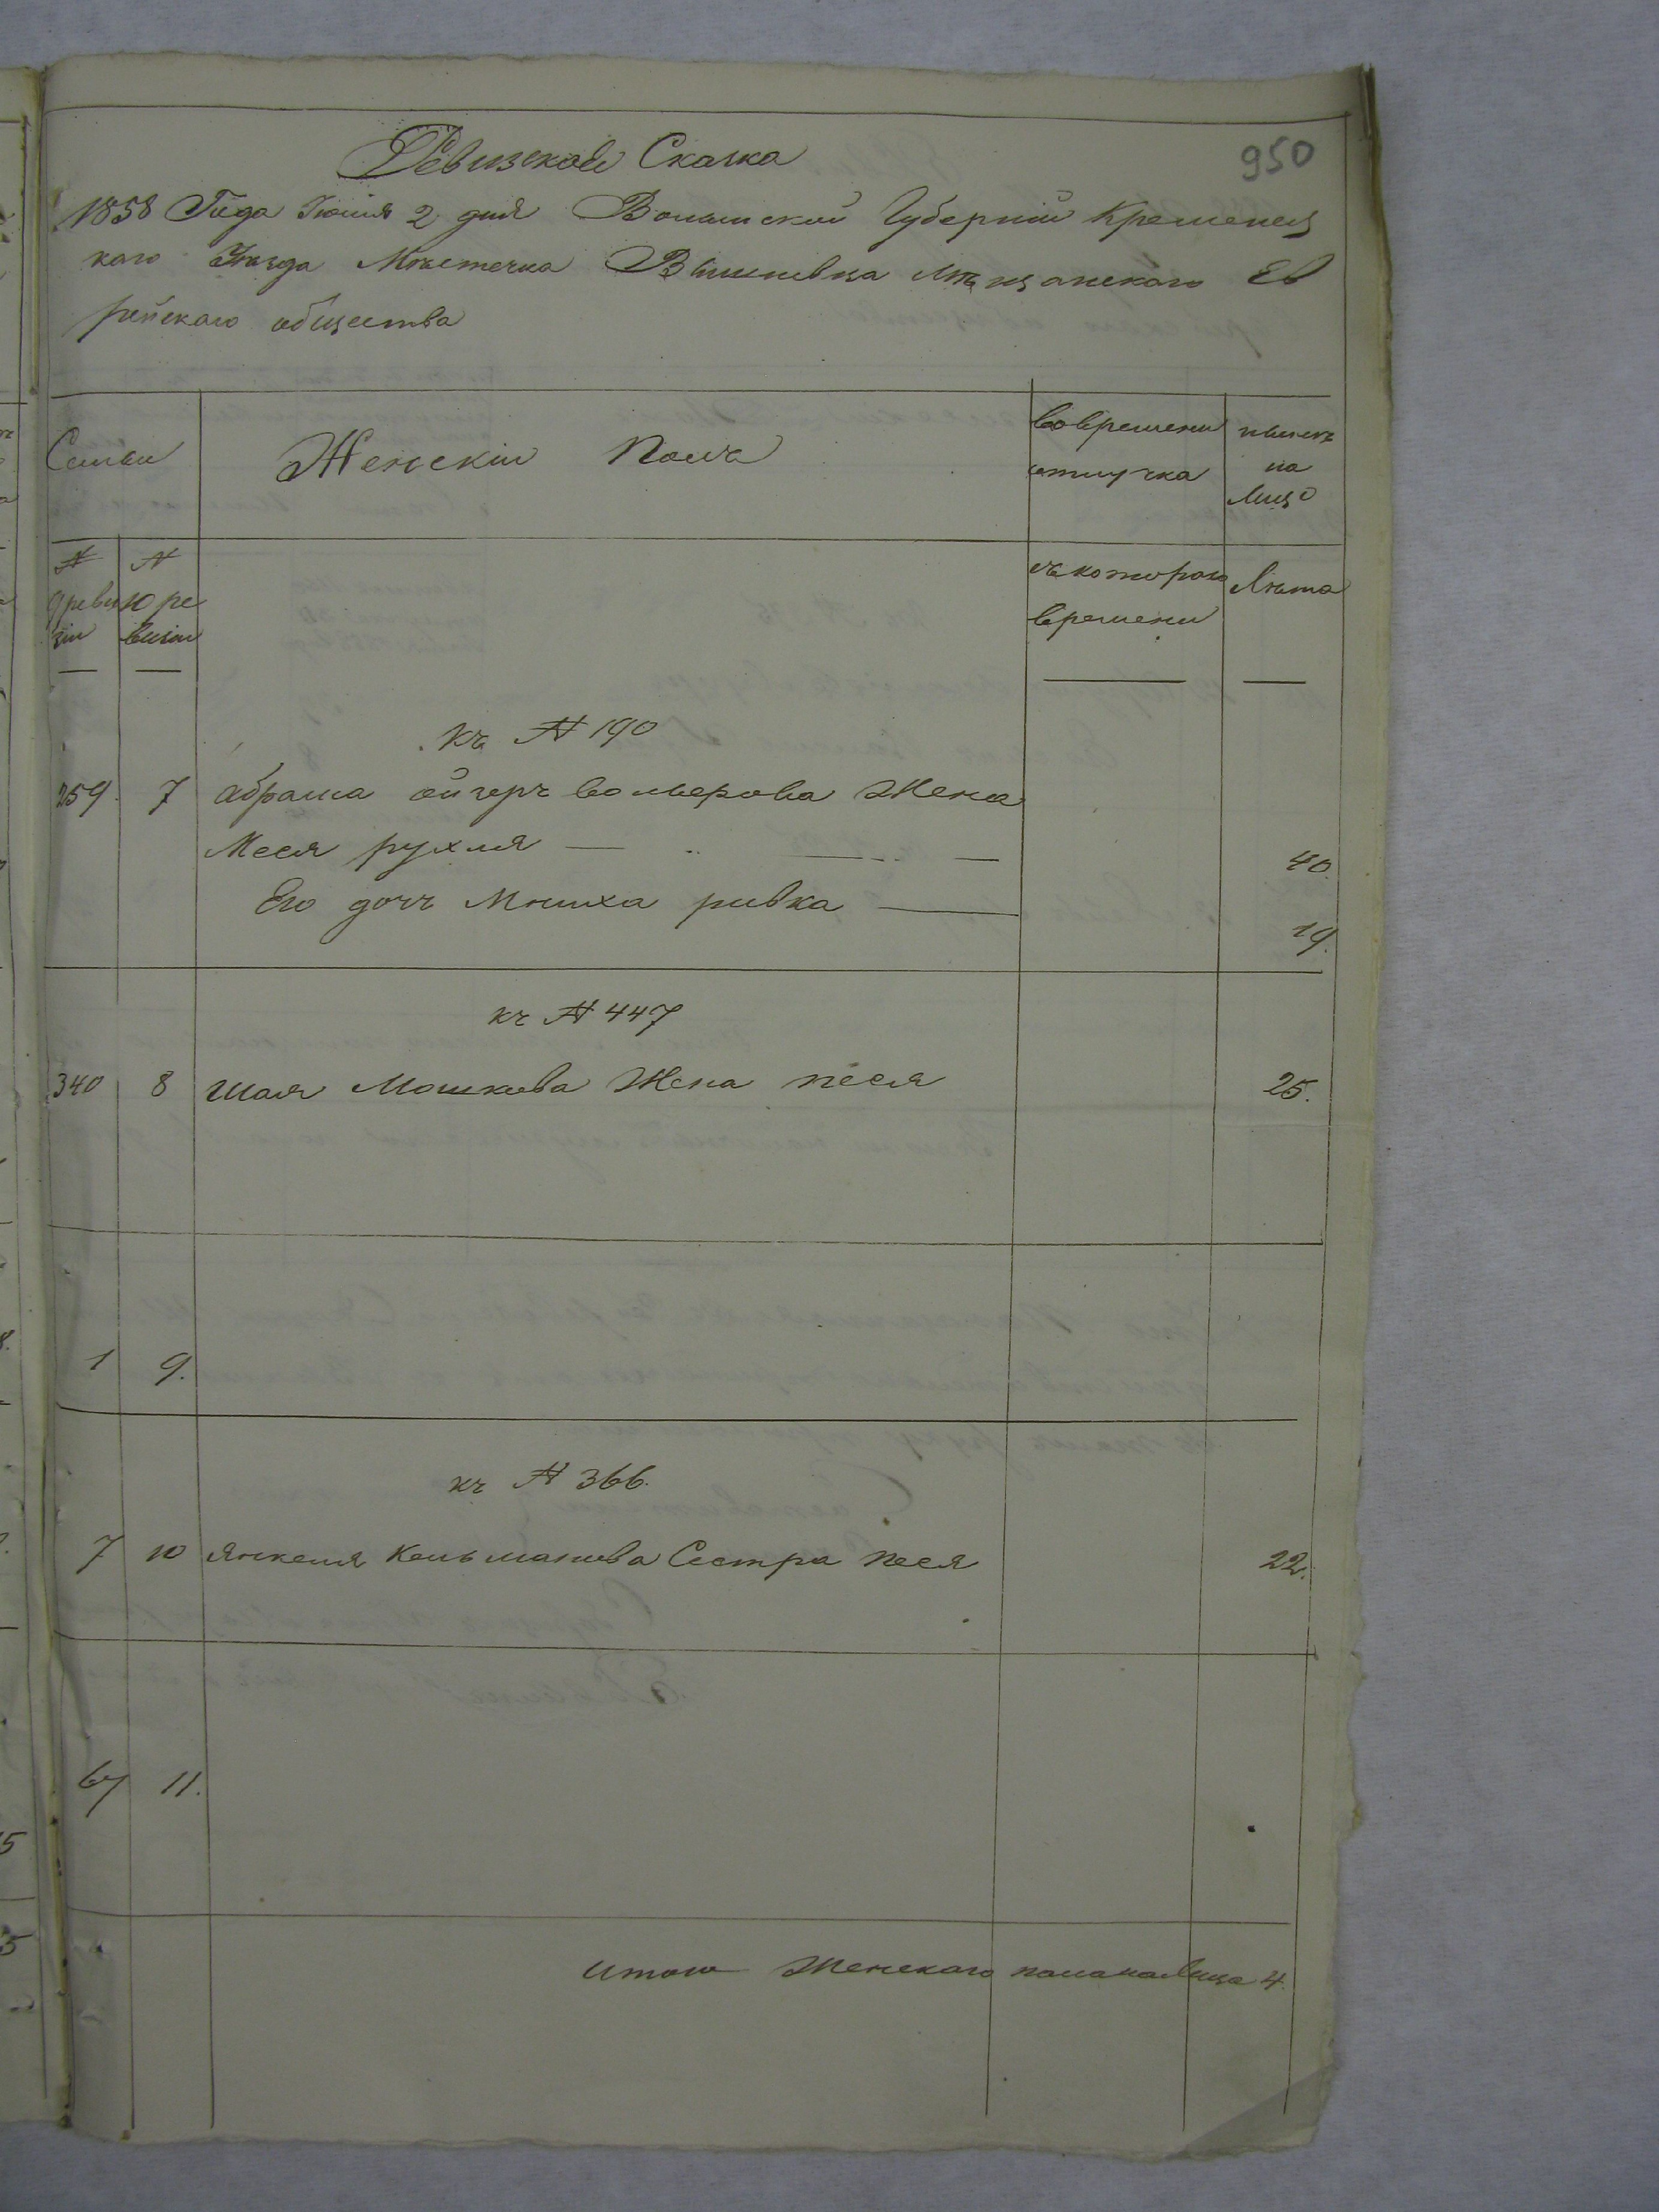 950
Ревизская Сказка
1858 Года Июня 2 дня Волынской Губерніи Кременец
каго Уезда Местечка Вишневца Мещанского Ев
рейскаго общества
Семьи
Женскій Полъ
во временной
отлучка
налич
на
Лицо
№
9 реви
зіи
№
10 ре
визіи
съ котораго
времени
Лѣта
къ № 190
259. 7 Абрама Вольерова Жена
Меся рухля 40.
Его дочь Мниха ривка 19.
къ № 447
340 8 Шая Мошкова Жена песя 25.
1 9.
къ № 366.
7 10 Янкеля Кельманова Сестра Песя 22.
67 11.
Итого Женскаго пола на лицо 4.